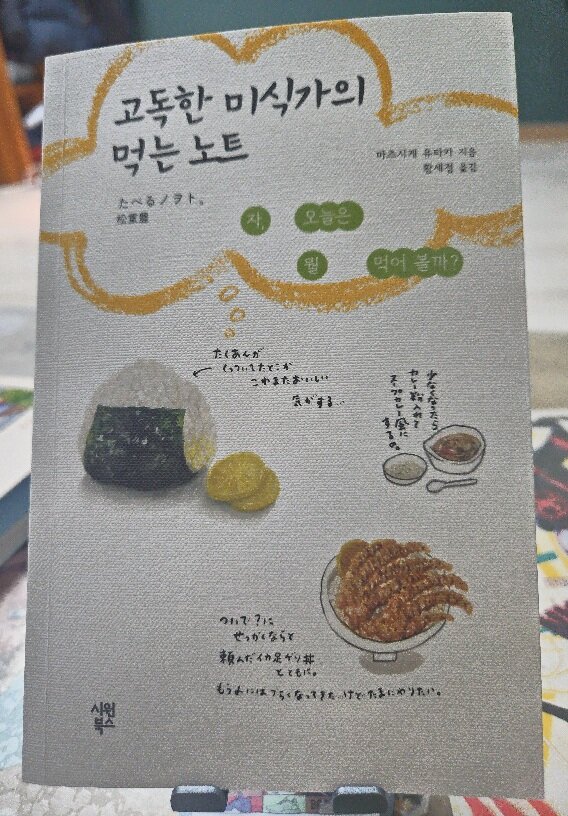 고독한 미식가의
먹는 노트
마츠시게 유타카 지음
황세정 옮김
たべるノヲト。
松重豊
자, 오늘은
뭘 먹어 볼까?
たくあんが
くっついてたとこが
これまたおいしい
気がする…
少なくなったら
カレー粉入れて
スープカレー風に
するの。
ついで?に
せっかくならと
頼んだイカ足ゲソ丼
とともに。
もう丼にはつらくなってきた けど たまにやりたい。
시원
북스